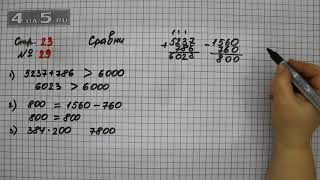 4da5.ru
Стр. 23 Сравни
№ 29
1) 5237+786 > 6000
6023 > 6000
2) 800 = 1560-760
800 = 800
3) 384·200 7800
1 1 1
+ 5237
786
6023
- 1560
760
800